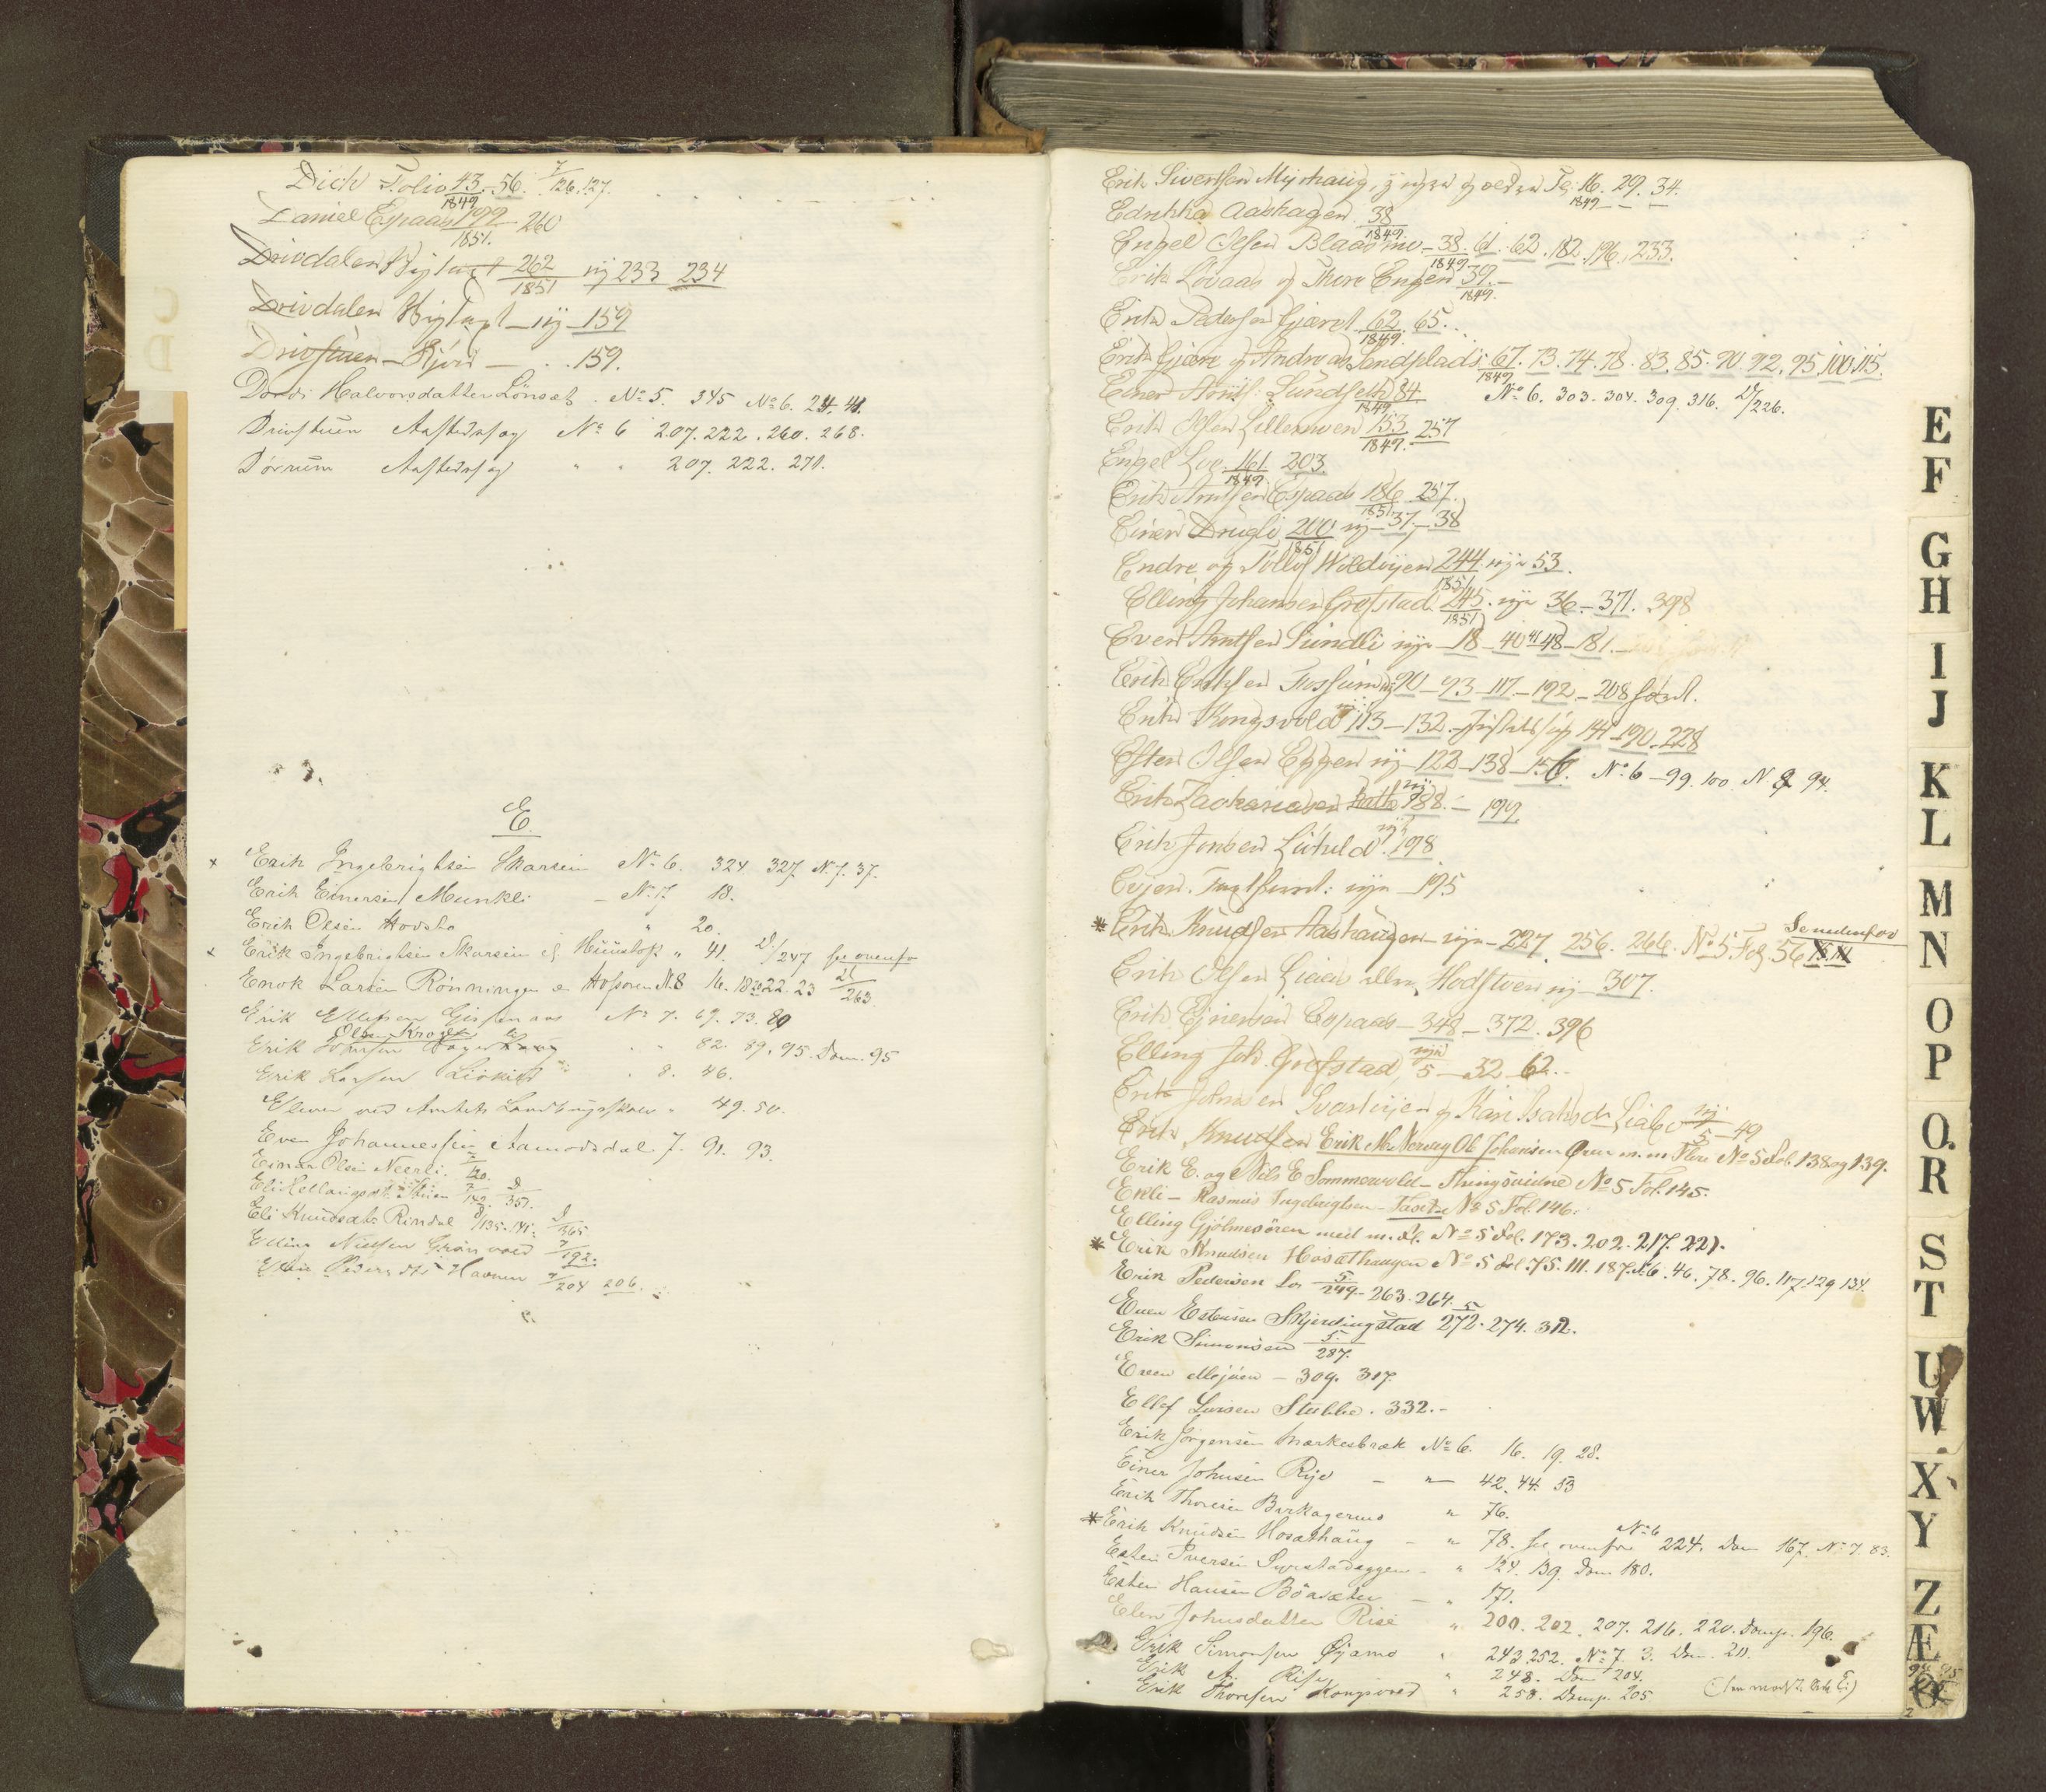 Dich Folio 43. 56. 7/126.127.
1849
Daniel Espaas 199 260
1851.
Drivdalens Bijlagt 262 nÿ 233 234
1851
Drivdalen Bijlagt nÿ 159
Drivstuen Kjörd 159.
Dordi Halvorsdatter Lönset. No 5. 345 No 6. 24. 41.
Drivstuen Aastedssag No 6 207. 222. 260. 268.
Dörrum Aastedssag " " 207. 222. 271.
E.
x Erik Ingebrigtsen Skarsem No 6. 324 327. N. 7. 37.
Erik Einersen Munkli - No 7. 18.
Erik Olsen Hovsho " 20.
x Erik Ingebrigtsen Skarsem " 41. D/247 se ovenfor
Enok Larsen Rönningen No 8 16. 18 22. 23 D/263
Erik Ellefsen No 7. 69. 73. 80
Olsen Krogh
Erik Johnsen 82. 89. 95. Dom. 95
Erik Larsen Liskild 8. 46.
Elever ved Amtets Landbrugsskole " 49. 50.
Even Johannessen Aamodsdal 7. 91. 93.
Einar Olsen Neerli 7/120.
Eli 7/142. D/357.
Eli Knudsdatter Rindal 8/135. 141. D/365
Elling Nielsen Grönvold 7/192.
Pedersdtr Havnen 7/204 206.
Erik Sivertsen Myrhaug, Fol 16. 29. 34.
1849
Aashagen 38
1849.
Engel Olsen Blaasmo 38. 61. 62. 182. 196. 233.
1849
Erik Lövaas og Thore Engen 39.
1849.
Erik Pedersen Gjæret 62. 65.
1849.
Erik Gjære og Andreas Sandplads 67. 73. 74. 78. 83. 85. 90. 92. 95. 100. 115.
1849
Einer Arnts. Lundseth 84 No 6. 303. 304. 309. 316. D/226.
1849
Erik Olsen Lillemoen 153 257
1849.
Engel Loe 161 203
1849
Erik Arntsen Espaas 186 257.
1851
Einer Drugli 200 nÿ 37. 38
1851
Endre og Tollef Woldöyen 244 nÿe 53.
1851
Elling Johansen Grefstad 245. nÿe 36 - 371. 398
1851
Even Arntsen Lundli nÿe 18 - 40 41 48 - 181.
Erik Eriksen Fossum nÿ 90 - 93 - 117 - 192 - 208
Erik Kongsvold nÿ 113 - 132 - 141 - 190. 228
Esten Olsen Eggen nÿ 122 - 138 - 156. No 6 - 99. 100. N 8 94.
Erik Zachariasen nÿ 188. - 199
Erik Jonsen Liskild nÿ 198
Evjen nÿe 195
Senedenfor
* Erik Knudsen Aashaugen - nÿe - 227. 256. 266. No 5 Fol. 56
Erik Olsen Liaas nÿ - 307.
Erik Ejnersen Espaas - 348 - 372. 396
Elling Joh. Grefstad nÿe 5 - 32 62.
Erik Johnsen Svartöyen og Kari Liabö nÿ 5 - 49
Erik Knudsen Erik Nerveg Ole Johansen Ören m. m. Flere No 5 Fol. 138 og 139.
Erik E. og Nils E Sommervold - Thingsvidne No 5 Fol. 145.
Ekli - Rasmus Ingebrigtsen - Taset No 5 Fol. 146.
Elling Gjölmesören med m. fl. No 5 Fol. 173. 202. 217. 221.
* Erik Knudsen Hosethaugen No 5 Fol. 75. 111. 187. No 6. 46. 78. 96. 117. 129 134.
Erik Pedersen Lo 5/249 - 263. 264.
Even Estensen Skjerdingstad 5 272. 274. 312.
Erik Simonsen 5/287.
Even Mojöen - 309. 317.
Ellef Larsen Stubbe. 332.-
Erik Jörgensen Mærkesbæk No 6. 16. 19. 28.
Einer Johnsen Rye - " - 42. 44. 53
Erik Thoresen Birkagerens " 76.
No 6
* Erik Knudsen Hosethaug - " 78. se ovenfor 224. Dom 167. No 7. 83.
Esten Iversen " 124. 139. Dom 180.
Esten Hansen Böasæter - " 171.
Elen Johnsdatter Rise " 200. 202. 207. 216. 220. Domp. 196.
Erik Simonsen Öjamo " 243. 252. No 7. 3. Dom. 211.
Erik A. Risey " 248. Dom 204.
Erik Thoresen Kongsvold " 258. Domp. 205
E
F
G
H
I
J
K
L
M
N
O
P
O.
R
S
T
U
W
X
Y
Z
Æ
Ö